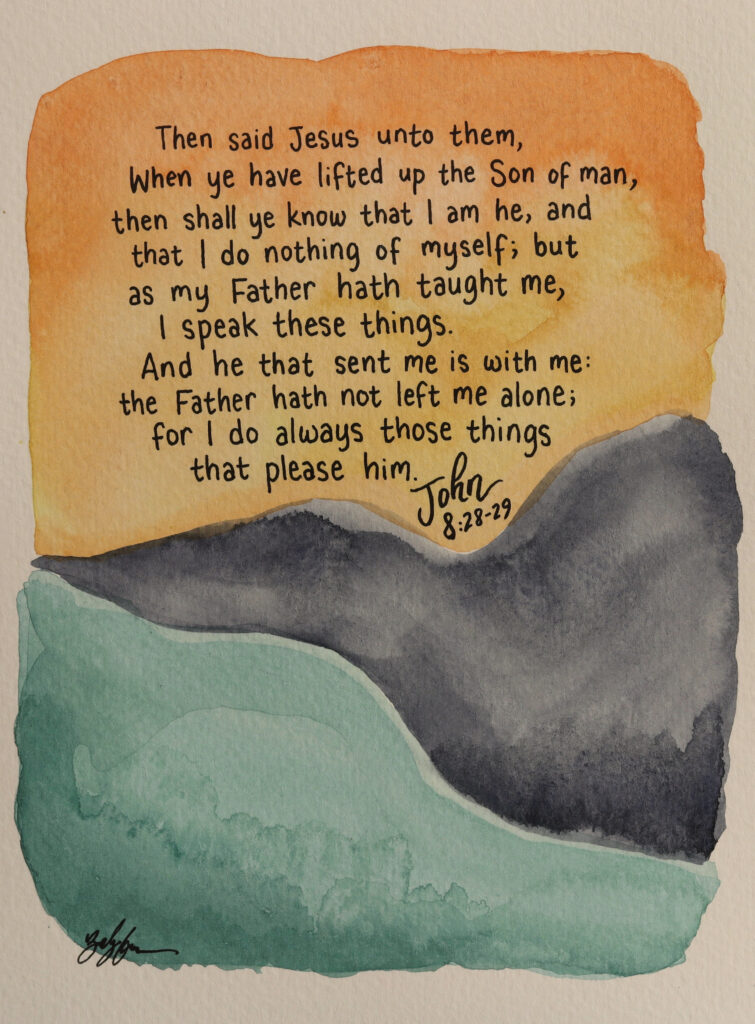 Then said Jesus unto them,
When ye have lifted up the Son of man,
then shall ye know that I am he, and
that I do nothing of myself; but
as my Father hath taught me,
I speak these things.
And he that sent me is with me:
the Father hath not left me alone;
for I do always those things
that please him.
John
8:28-29